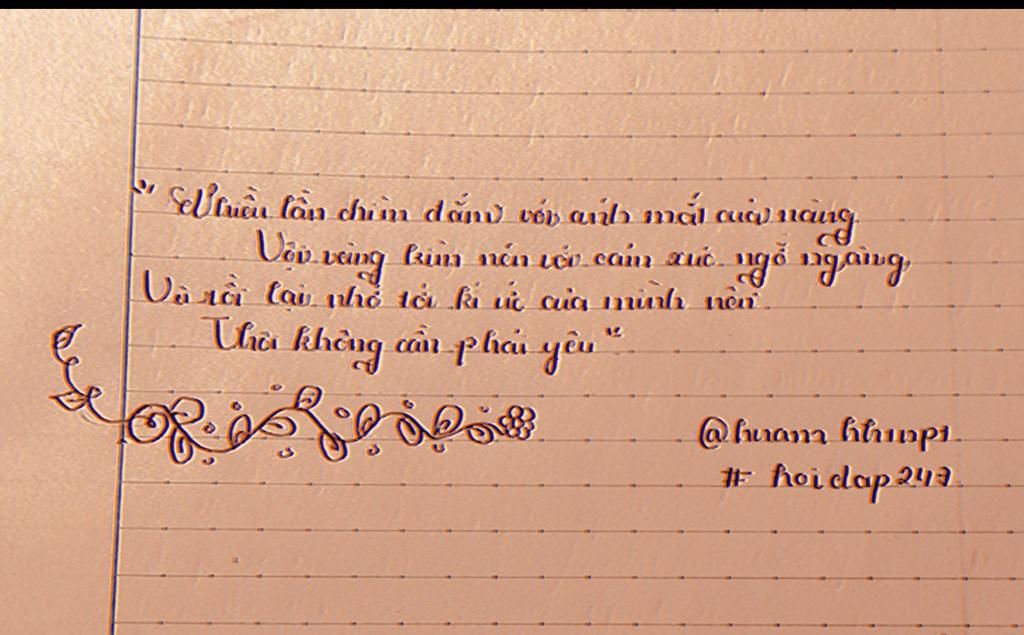 "Nhiều lần chìm đắm với ánh mắt của nàng
Vội vàng kìm nén với cảm xúc ngỡ ngàng,
Và rồi lại nhớ tới kí ức của mình nên
Thôi không cần phải yêu"
# hoidap247